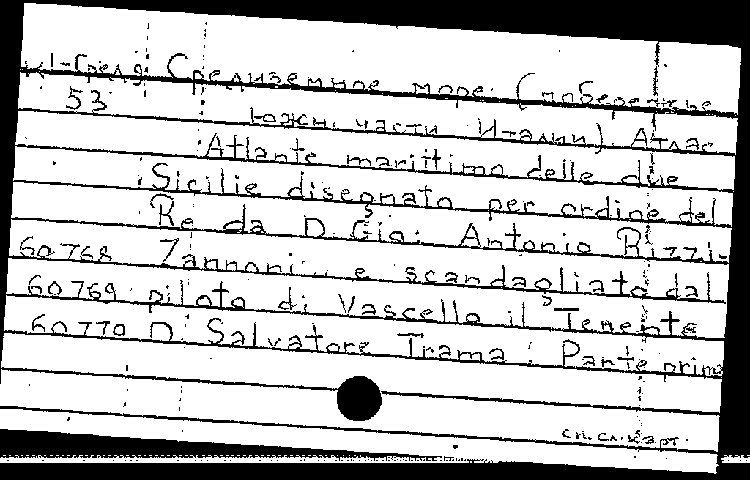 К1-Сред. Средиземное море. (побережье
53 южн. части Италии). Атлас
Atlante marittimo delle due
Sicilie disegnato per ordine del
Re da D. Gio: Antonio Rizzi-
60768 Zannoni... e scandagliato dal
60769 piloto di Vascello il Tenente
60770 D. Salvatore Trama. Parte prima
см. сл. карт.